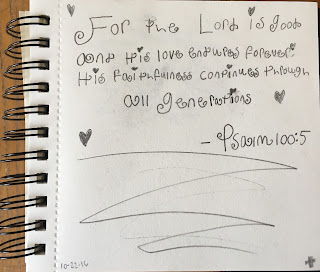 For the Lord is good
and His love endures forever;
His faithfulness continues through
all generations
- Psalm 100:5
10-22-16